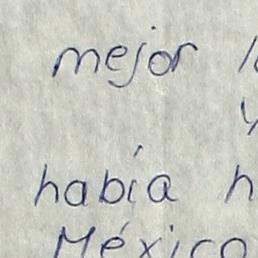 mejor
y
había
México